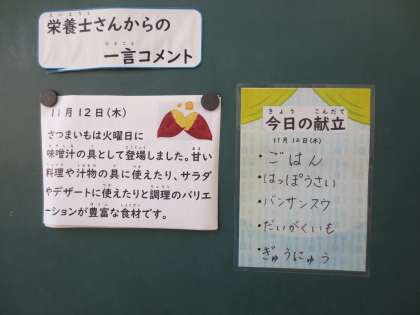 栄養士さんからの
一言コメント
11月12日(木)
さつまいもは火曜日に
味噌汁の具として登場しました。甘い
料理や汁物の具に使えたり、サラダ
やデザートに使えたりと調理のバリエ
ーションが豊富な食材です。
きょう こんだて
今日の献立
11月12日(木)
・ごはん
・はっぽうさい
・バンサンスウ
・だいがくいも
・ぎゅうにゅう